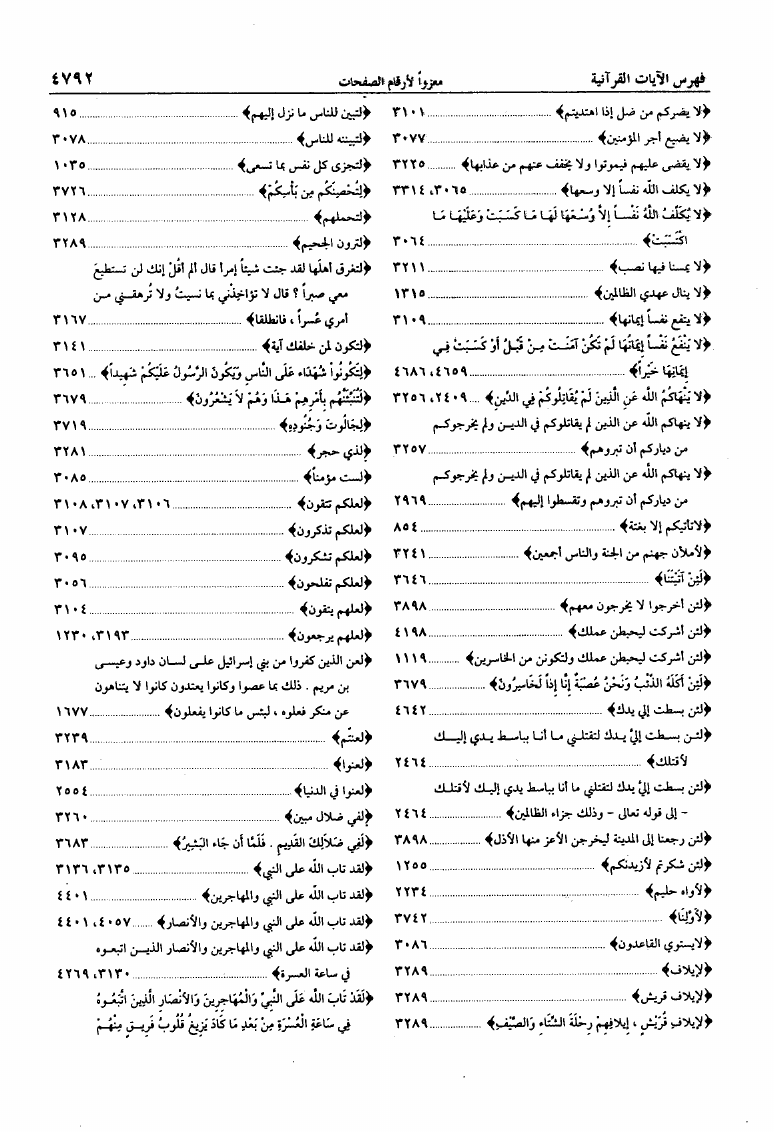 فهرس الآيات القرآنية
معزواً لأرقام الصفحات
٤٧٩٢
﴿لا يضركم من ضل إذا اهتديتم﴾ ... ٣١٠١
﴿لا يضيع أجر المؤمنين﴾ ... ٣٠٧٧
﴿لا يقضى عليهم فيموتوا ولا يخفف عنهم من عذابها﴾ ... ٣٢٢٥
﴿لا يكلف الله نفساً إلا وسعها﴾ ... ٣٠٦٥، ٣٣١٤
﴿لا يُكَلِّفُ اللهُ نَفْساً إِلاَّ وُسْعَهَا لَهَا مَا كَسَبَتْ وَعَلَيْهَا مَا
اكْتَسَبَتْ﴾ ... ٣٠٦٤
﴿لا يمسنا فيها نصب﴾ ... ٣٢١١
﴿لا ينال عهدي الظالمين﴾ ... ١٣١٥
﴿لا ينفع نفساً إيمانها﴾ ... ٣١٠٩
﴿لا يَنْفَعُ نَفْساً إِيمَانُهَا لَمْ تَكُنْ آمَنَتْ مِنْ قَبْلُ أَوْ كَسَبَتْ فِي
إِيمَانِهَا خَيْراً﴾ ... ٤٦٥٩، ٤٦٨٦
﴿لا يَنْهَاكُمُ الله عَنِ الَّذِينَ لَمْ يُقَاتِلُوكُمْ فِي الدِّينِ﴾ ... ٢٤٠٩، ٣٢٥٦
﴿لا ينهاكم الله عن الذين لم يقاتلوكم في الدين ولم يخرجوكم
من دياركم أن تبروهم﴾ ... ٣٢٥٧
﴿لا ينهاكم الله عن الذين لم يقاتلوكم في الدين ولم يخرجوكم
من دياركم أن تبروهم وتقسطوا إليهم﴾ ... ٢٩٦٩
﴿لاتأتيكم إلا بغتة﴾ ... ٨٥٤
﴿لأملأن جهنم من الجنة والناس أجمعين﴾ ... ٣٢٤١
﴿لَئِنْ آتَيْتَنَا﴾ ... ٣٦٤٦
﴿لئن أخرجوا لا يخرجون معهم﴾ ... ٣٨٩٨
﴿لئن أشركت ليحبطن عملك﴾ ... ٤١٩٨
﴿لئن أشركت ليحبطن عملك ولتكونن من الخاسرين﴾ ... ١١١٩
﴿لَئِنْ أَكَلَهُ الذِّئْبُ وَنَحْنُ عُصْبَةٌ إِنَّا إِذاً لَخَاسِرُونَ﴾ ... ٣٦٧٩
﴿لئن بسطت إلي يدك﴾ ... ٤٦٤٢
﴿لئن بسطت إليَّ يدك لتقتلني ما أنا بباسط يدي إليك
لأقتلك﴾ ... ٢٤٦٤
﴿لئن بسطت إليَّ يدك لتقتلني ما أنا بباسط يدي إليك لأقتلك
- إلى قوله تعالى - وذلك جزاء الظالمين﴾ ... ٢٤٦٤
﴿لئن رجعنا إلى المدينة ليخرجن الأعز منها الأذل﴾ ... ٣٨٩٨
﴿لئن شكرتم لأزيدنكم﴾ ... ١٢٥٥
﴿لأواه حليم﴾ ... ٢٢٣٤
﴿لأَوَّلِنَا﴾ ... ٣٧٤٢
﴿لايستوي القاعدون﴾ ... ٣٠٨٦
﴿لإيلاف﴾ ... ٣٢٨٩
﴿لإيلاف قريش﴾ ... ٣٢٨٩
﴿لإيلافِ قُرَيْشٍ ، إيلافِهِمْ رِحْلَةَ الشِّتَاءِ وَالصَّيْفِ﴾ ... ٣٢٨٩
﴿لتبين للناس ما نزل إليهم﴾ ... ٩١٥
﴿لتبيننه للناس﴾ ... ٣٠٧٨
﴿لتجزى كل نفس بما تسعى﴾ ... ١٠٣٥
﴿لِتُحْصِنَكُم مِن بَأْسِكُمْ﴾ ... ٣٧٢٦
﴿لتحملهم﴾ ... ٣١٢٨
﴿لترون الجحيم﴾ ... ٣٢٨٩
﴿لتغرق أهلَها لقد جئت شيئاً إمراً قال ألم أقُلْ إنك لن تستطيعَ
معي صبراً ؟ قال لا تؤاخِذْني بما نسيتُ ولا تُرهقني من
أمري عُسراً ، فانطلقا﴾ ... ٣١٦٧
﴿لتكون لمن خلفك آية﴾ ... ٣١٤١
﴿لِتَكُونُواْ شُهَدَاء عَلَى النَّاسِ وَيَكُونَ الرَّسُولُ عَلَيْكُمْ شَهِيداً﴾ ... ٣٦٥١
﴿لَتُنَبِّئَنَّهُم بِأَمْرِهِمْ هَذَا وَهُمْ لاَ يَشْعُرُونَ﴾ ... ٣٦٧٩
﴿لِجَالُوتَ وَجُنُودِهِ﴾ ... ٣٧١٩
﴿لذي حجر﴾ ... ٣٢٨١
﴿لست مؤمناً﴾ ... ٣٠٨٥
﴿لعلكم تتقون﴾ ... ٣١٠٦، ٣١٠٧، ٣١٠٨
﴿لعلكم تذكرون﴾ ... ٣١٠٧
﴿لعلكم تشكرون﴾ ... ٣٠٩٥
﴿لعلكم تفلحون﴾ ... ٣٠٥٦
﴿لعلهم يتقون﴾ ... ٣١٠٤
﴿لعلهم يرجعون﴾ ... ٣١٩٣، ١٢٣٠
﴿لعن الذين كفروا من بني إسرائيل على لسان داود وعيسى
بن مريم . ذلك بما عصوا وكانوا يعتدون كانوا لا يتناهون
عن منكر فعلوه ، لبئس ما كانوا يفعلون﴾ ... ١٦٧٧
﴿لعنتُّم﴾ ... ٣٢٣٩
﴿لعنوا﴾ ... ٣١٨٣
﴿لعنوا في الدنيا﴾ ... ٢٥٥٤
﴿لفي ضلال مبين﴾ ... ٣٢٦٠
﴿لَفِي ضَلاَلِكَ القَدِيمِ . فَلَمَّا أَن جَاء البَشِيرُ﴾ ... ٣٦٨٣
﴿لقد تاب الله على النبي﴾ ... ٣١٣٥، ٣١٣٦
﴿لقد تاب الله على النبي والمهاجرين﴾ ... ٤٤٠١
﴿لقد تاب الله على النبي والمهاجرين والأنصار﴾ ... ٤٠٥٧، ٤٤٠١
﴿لقد تاب الله على النبي والمهاجرين والأنصار الذين اتبعوه
في ساعة العسرة﴾ ... ٣١٣٠، ٤٢٦٩
﴿لَقَدْ تَابَ الله عَلَى النَّبِيِّ وَالْمُهَاجِرِينَ وَالأَنْصَارِ الَّذِينَ اتَّبَعُوهُ
فِي سَاعَةِ الْعُسْرَةِ مِنْ بَعْدِ مَا كَادَ يَزِيغُ قُلُوبُ فَرِيقٍ مِنْهُمْ